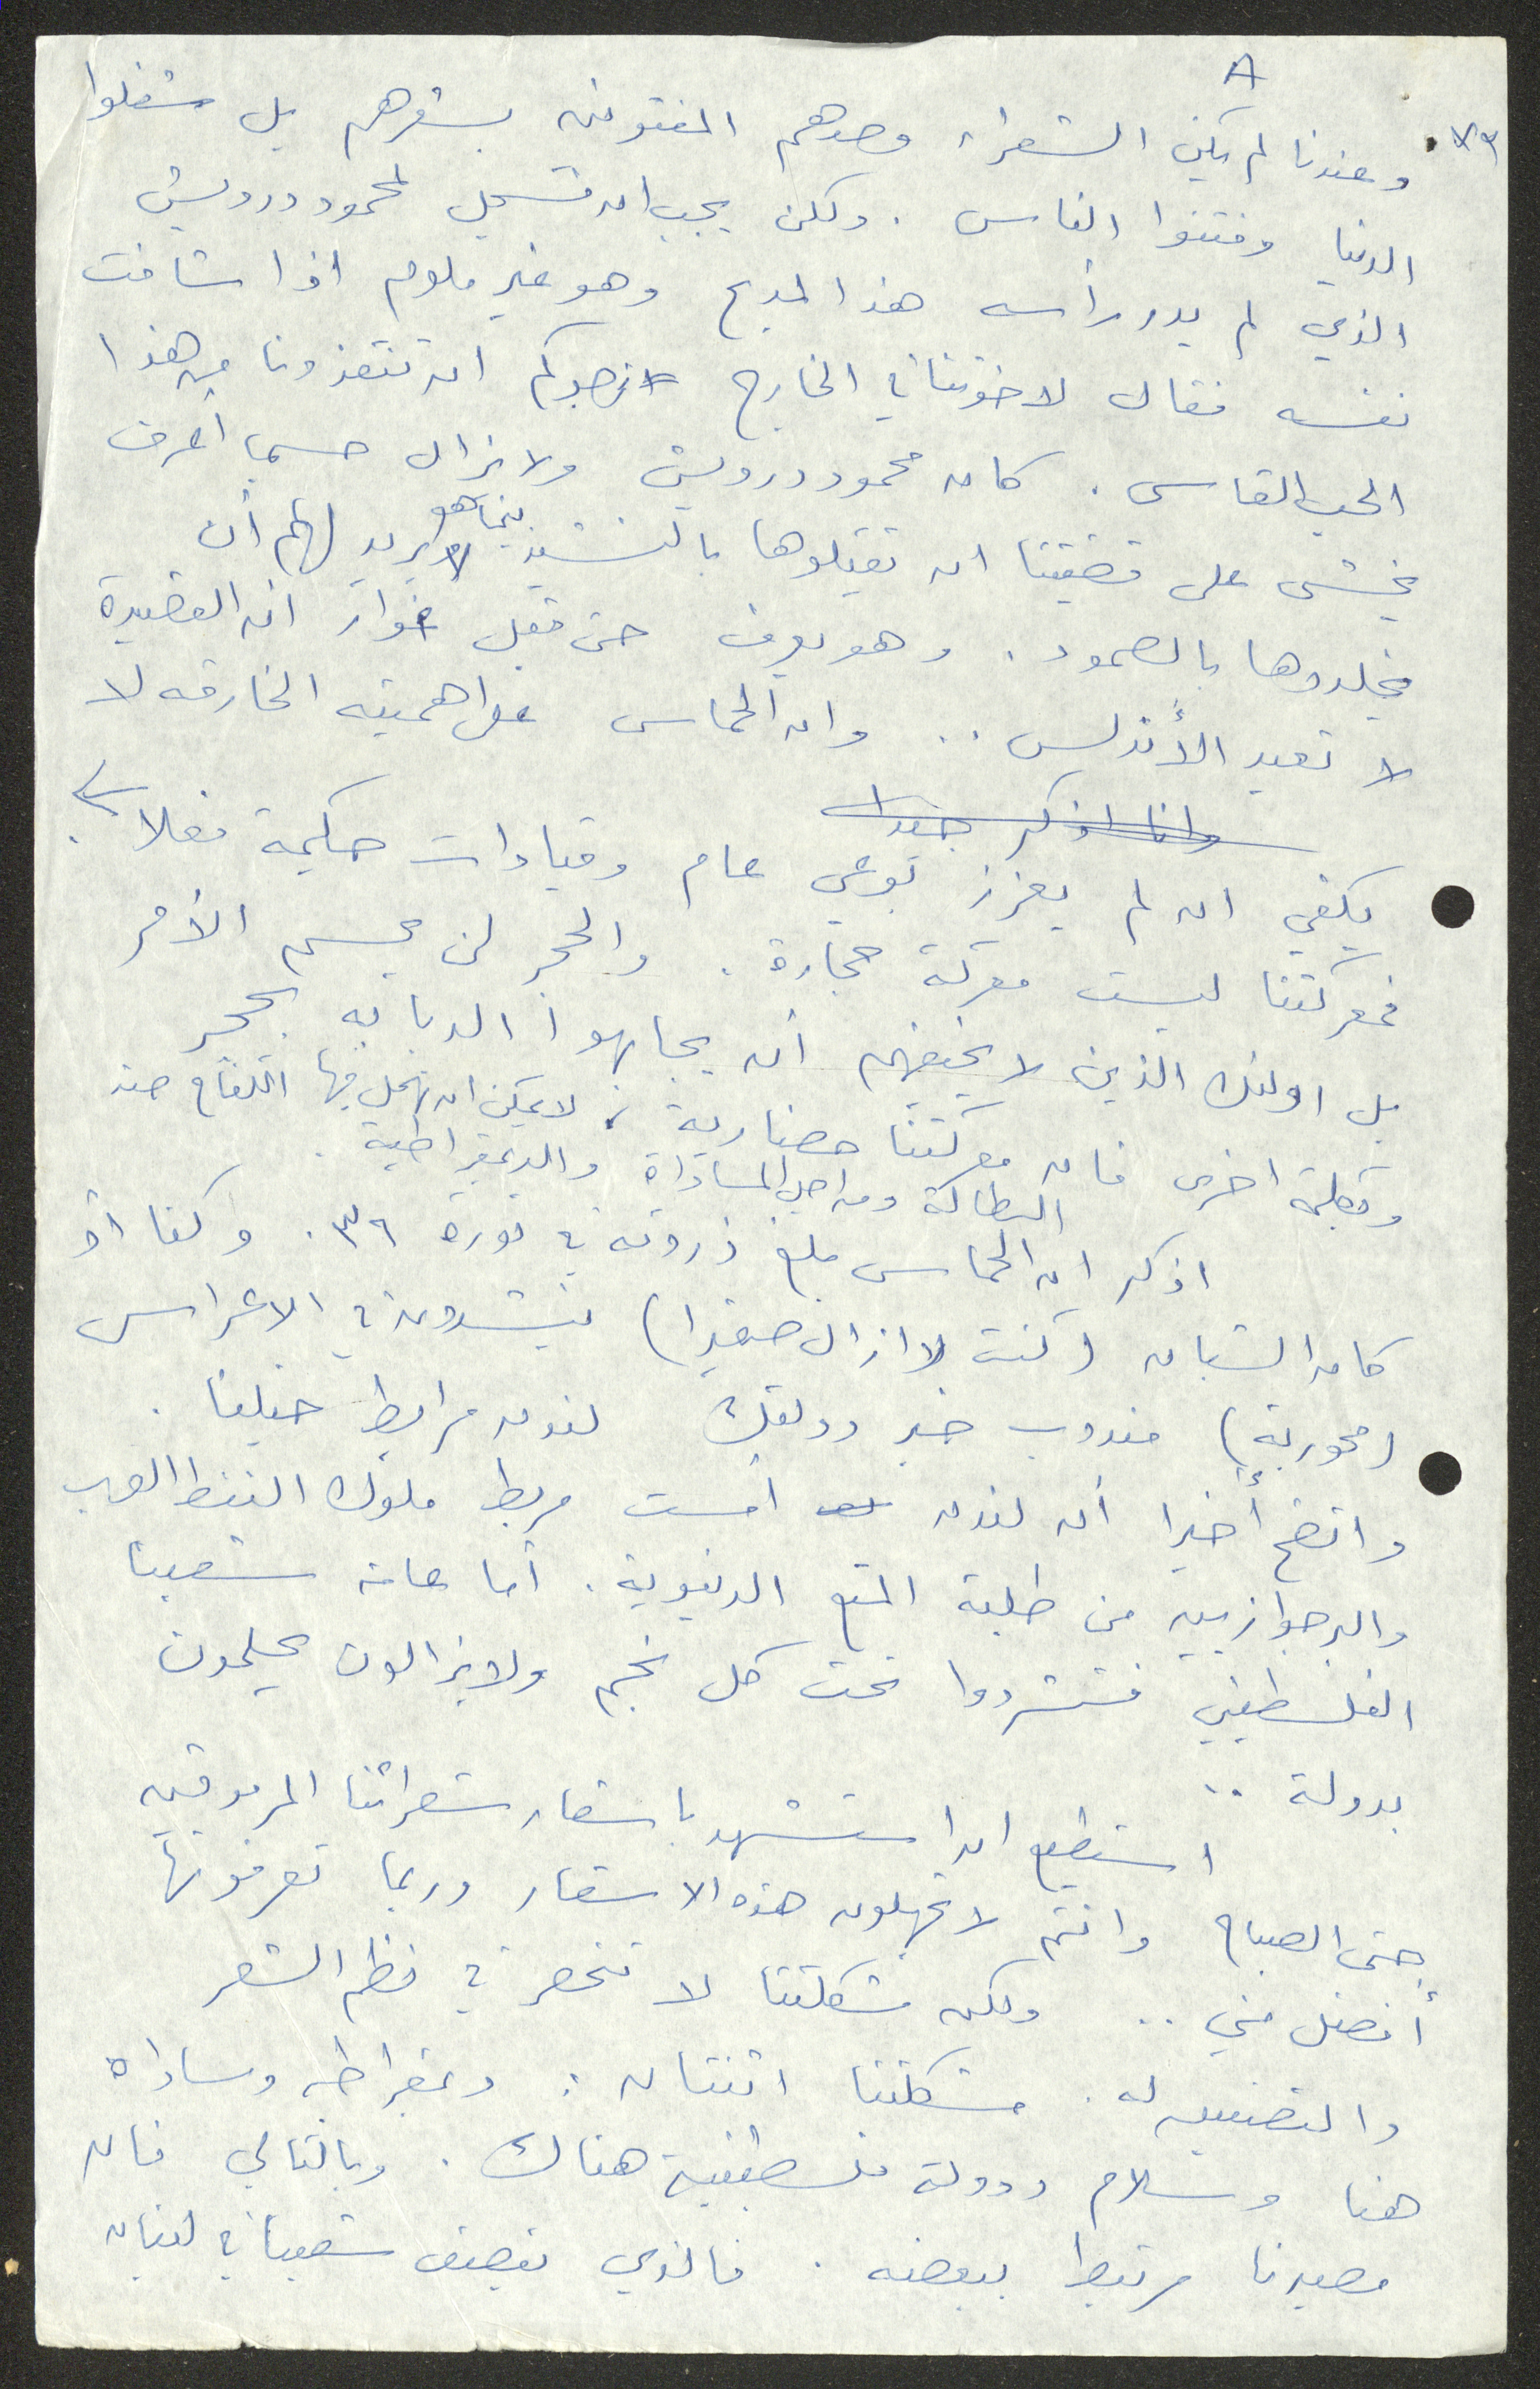 A
وعندنا لم يكن الشعراء وحدهم المفتونين بشعرهم بل شغلوا
الدنيا وفتنوا الناس . ولكن يجب ان نسجل لمحمود درويش
الذي لم يدر رأسه هذا المديح وهو غير ملوم اذا شافت
نفسه فقال لاخوتنا في الخارج نرجوكم ان تنقذونا من هذا
الحب القاسي . كان محمود درويش ولا يزال حسبما أعرف
يخشى على قضيتنا ان تقتلوها بالنشيد بينما هو يريد لهم أن
يخلدوها بالصمود . وهو يعرف حتى قبل ان القصيدة
لا تعيد الأندلس .. وان الحماس على اهميته الخارقه لا
وانا اذكر جيدا
يكفي ان لم يعزز بوعي عام وقيادات حكيمة فعلا
فمعركتنا ليست معركة حجارة . والحجر لن يحسم الأمر
بل اولئك الذين لا يخيفهم أن يجابهوا الدبابه بحجر
وبكلمة اخرى فان معركتنا حضارية لا يمكن ان نهمل فيها الكفاح ضد
البطالة ومن اجل المساواة والديمقراطية .
اذكر ان الحماس بلغ ذروته في ثورة ٣٦ . وكنا او
كان الشبان (كنت لا ازال صغيرا) ينشدون في الاعراس
(محوربة) مندوب خبر دولتك لندن مرابط خيلنا .
واتضح أخيرا أن لندن أمست مربط ملوك النفط العرب
والبرجوازيين من طلبة المتع الدنيوية . أما عامة شعبنا
الفلسطيني فتشردوا تحت كل نجم ولا يزالون يحلمون
بدولة ..
استطيع ان استشهد باشعار شعرائنا المرموقين
حتى الصباح وانتم لا تجهلون هذه الاشعار وربما تعرفونها
أفضل مني .. ولكن مشكلتنا لا تنحصر في نظم الشعر
والتصفيق له . مشكلتنا اثنتان : ديمقراطيه ومساواه
هنا وسلام ودولة فلسطينية هناك . وبالتالي فان
مصيرنا مرتبط ببعضه . فالذي يصيب شعبنا في لبنان